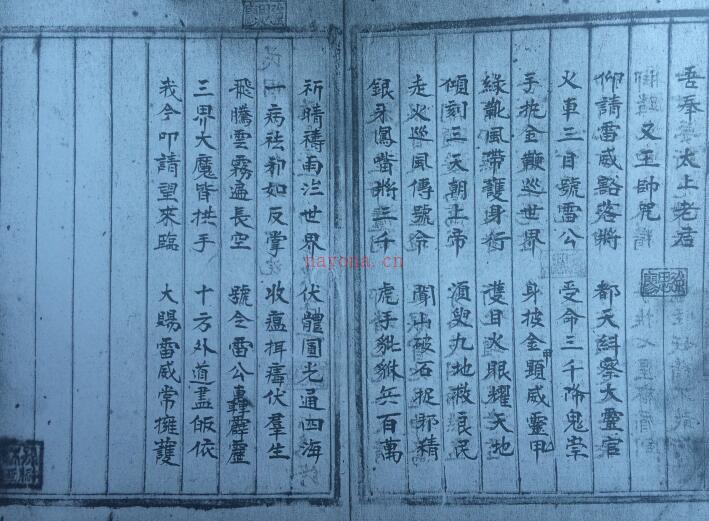 吾奉太上老君
又王帥咒
仰請雷威豁落將 都天糾察大靈官
火車三目號雷公 受命三千降鬼祟
手执金鞭巡世界 身披金甲顯威靈甲
綠靴風帶護身 雙目火眼耀天地
傾刻三天朝上帝 須臾九地救良民
走火巡風傳號命 開山破石捉邪精
銀牙鳳嘴將三千 虎手貔貅兵百萬
祈晴禱雨世界 伏體圓光通四海
一病祛邪如反掌 收瘟伏羣生
飛騰雲霧遍長空 號令雷公轟霹靂
三界大魔皆拱手 十方外道盡皈依
我今叩請望來臨 大賜雷威常擁護
nayona.cn